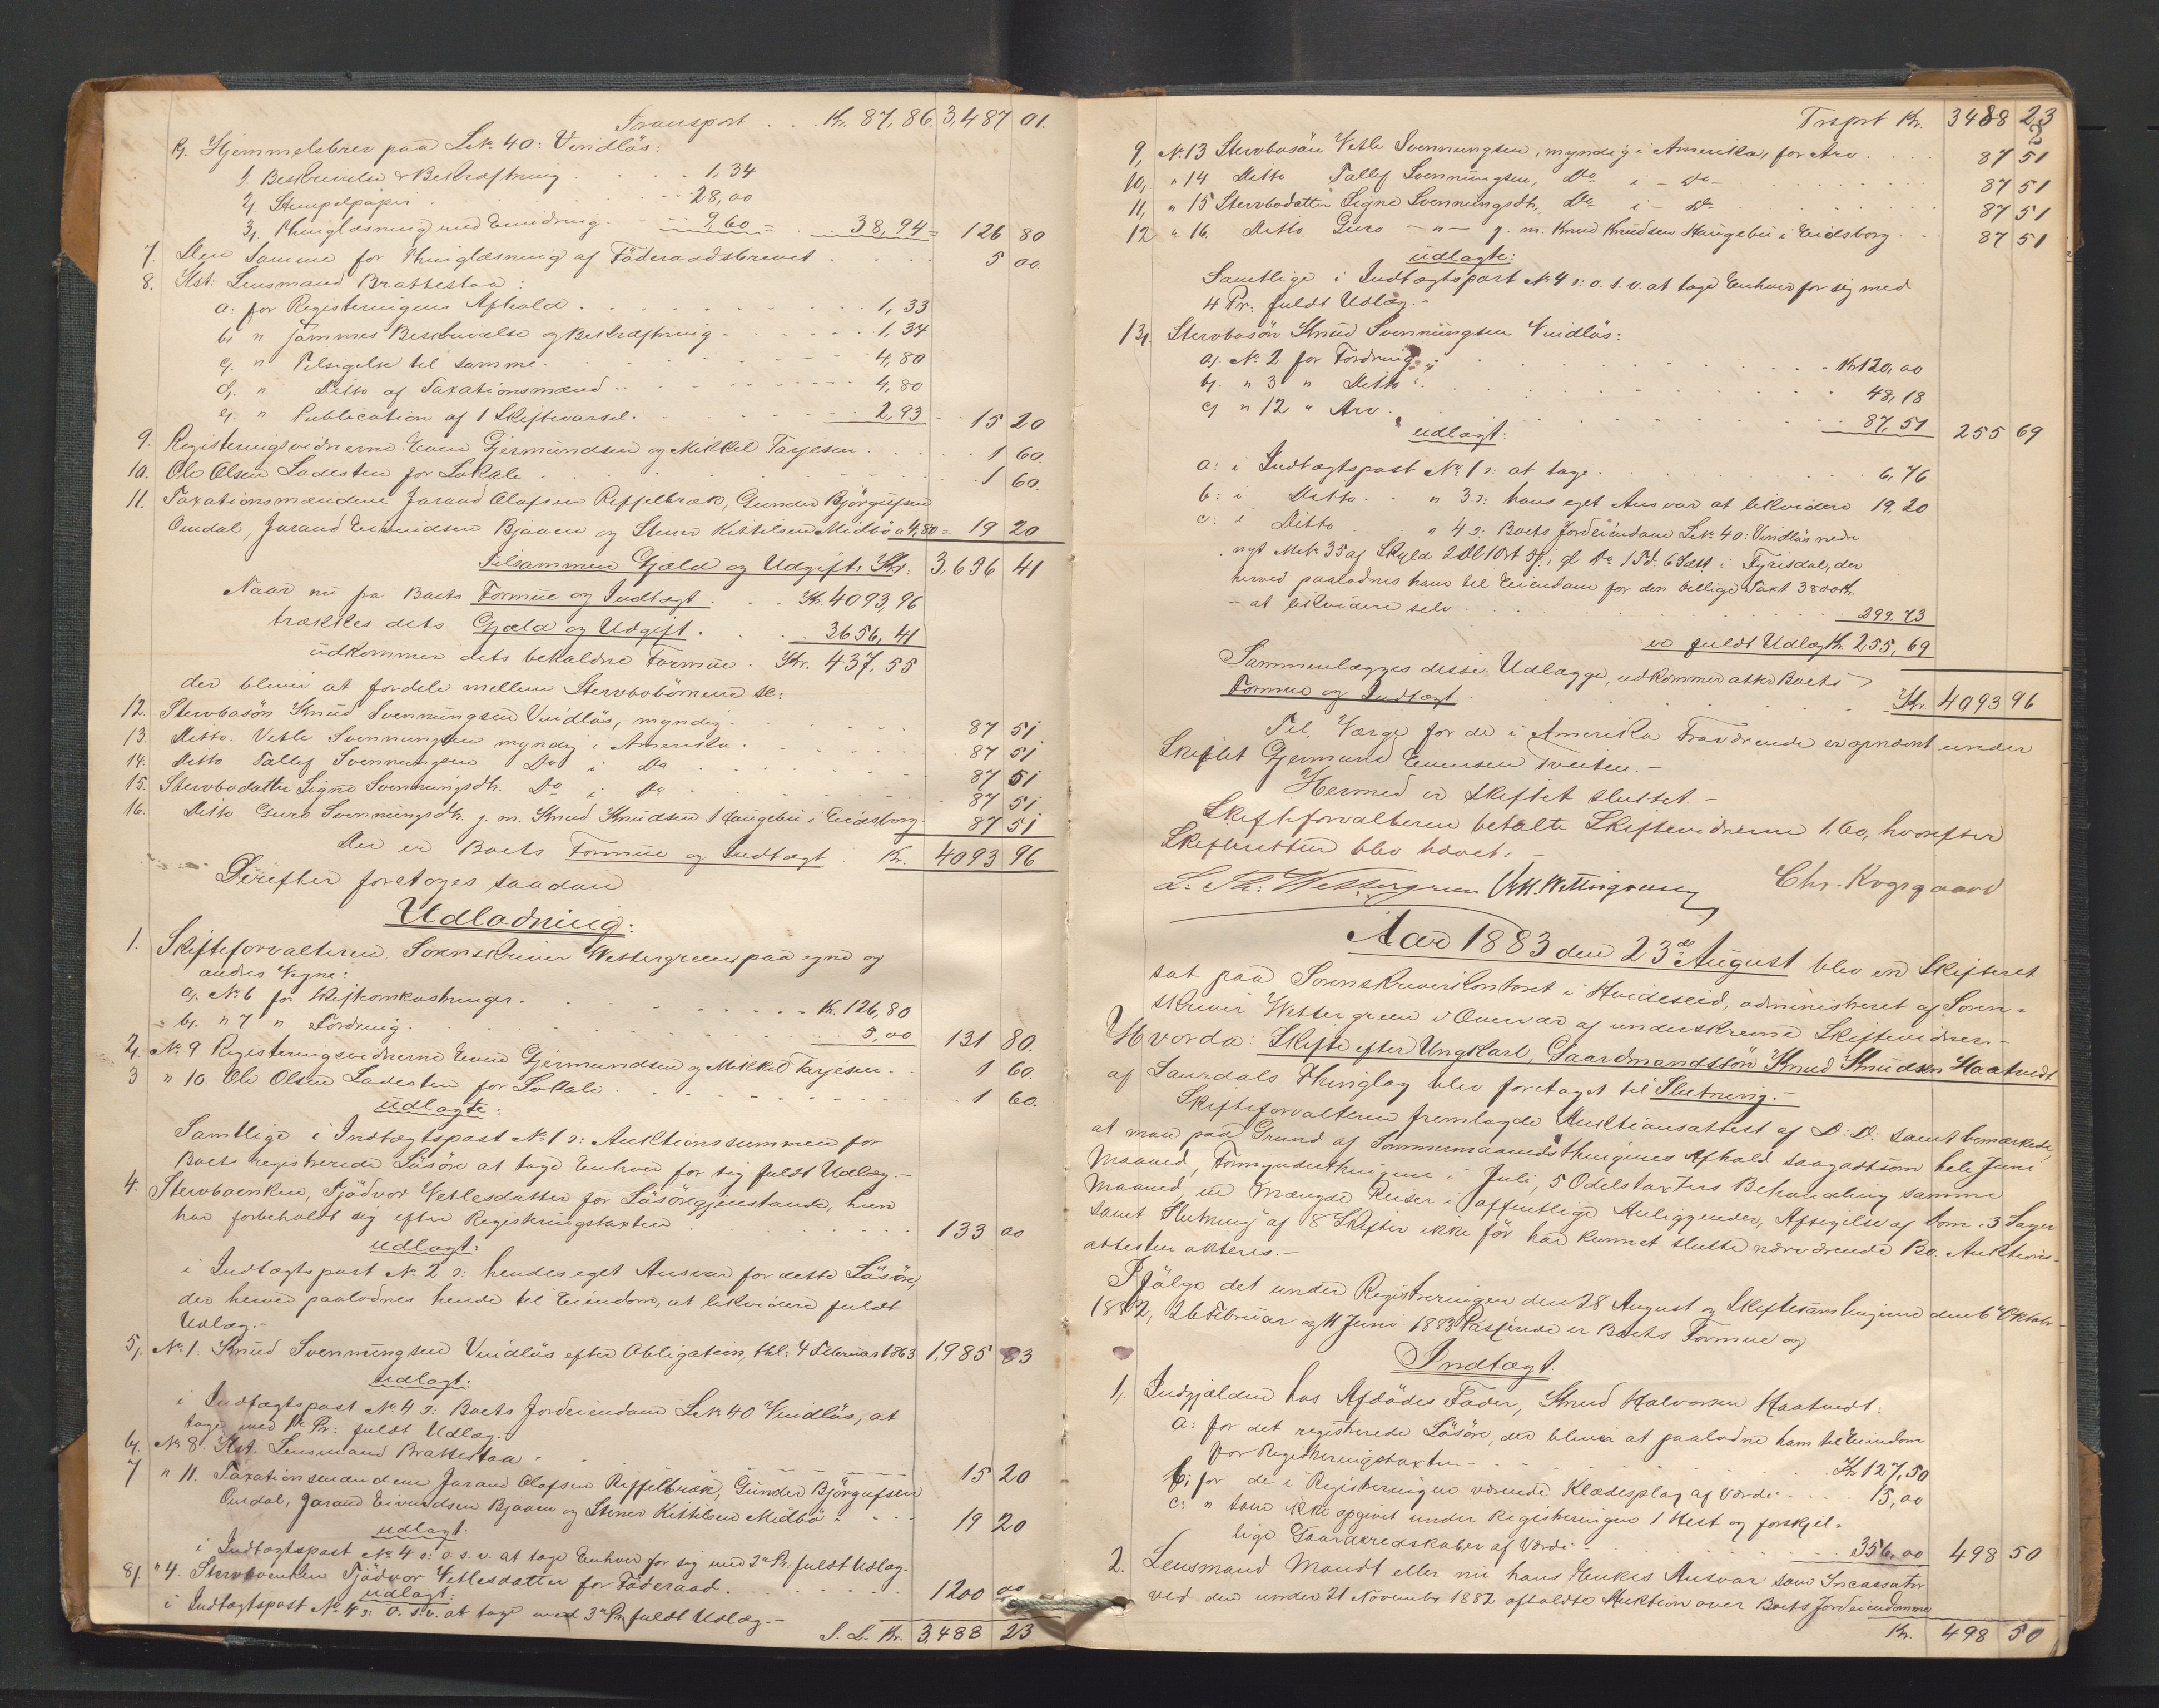 Transport . . Kr. 87,86. 3,487 01.
g. Hjemmelsbrev paa Lk. 40: Vindlös:
1. Beskrivelse & Bekræftning . . . . 1,34
2. Stempelpapir . . . . 28,00
3. Thinglæsning med Envidring . . . 9,60 = . . 38,94 = 126 80
7. Den Samme for Thinglæsning af Föderaadsbrevet . . . . 5 00.
8. Kst: Lensmand Brattestaa:
a: for Registeringens Afhold . . . . 1,33
b. " Sammes Beskrivelse og Bekræftning . . . . 1,34
c. " Tilsigelse til samme . . . . 4,80
d. " Ditto af Taxationsmænd . . . . 4,80
e. " Publication af 1 Skiftevarsel . . . . 2,93 . . 15 20
9. Registeringsvidnerne Even Gjermundsen og Mikkel Tarjesen . . . . 1 60.
10. Ole Olsen Ladesten for Lokale . . . . 1 60.
11. Taxationsmændene Jarand Olafsen Reffelbræk, Gunder Björgufsen
Omdal, Jarand Eivindsen Bjaaen og Stener Kittilsen Midbö a 4,80 = 19 20
Tilsammen Gjæld og Udgift: Kr. 3,636 41
Naar nu fra Boets Formue og Indtægt . . . Kr. 4093,96
trækkes dets Gjæld og Udgift . . . 3656,41
udkommer dets beholdne Formue . Kr. 437,55
der bliver at fordele mellem Stervbobörnene sc:
12. Stervbosön Knud Svenningsen Vindlös, myndig . . . . 87 51
13. Ditto. Vetle Svenningsen myndig i Amerika . . . . 87 51
14. Ditto Tallef Svenningsen Do i Do . . . . 87 51
15. Stervbodatter Signe Svenningsdtr. Do i Do . . . . 87 51
16. Ditto Guro Svenningsdtr. g. m. Knud Knudsen Haugebu i Eidsborg . 87 51
Der er Boets Formue og Indtægt . Kr. 4093 96
Derefter foretoges saadan
Udlodning:
1. Skifteforvalteren, Sorenskriver Wettergreen paa egne og
andres Vegne:
a. No 6 for Skifteomkostninger . . . . Kr. 126,80
b. " 7 " Fordring . . . . 5,00 131 80.
2. No 9 Registeringsvidnerne Even Gjermundsen og Mikkel Tarjesen . . 1 60.
3 " 10. Ole Olsen Ladesten for Lokale . . . . 1 60.
udlagte:
Samtlige i Indtægtspost No 1 ɔ: Auktionssummen for
Boets registrerede Lösöre at tage Enhver for sig fuldt Udlæg.–
4. Stervboenken, Tjödvor Vetlesdatter for Lösöregjenstande, hun
har forbeholdt sig efter Registreringstaxten . . . . 133 00
udlagt:
i Indtægtspost No 2 ɔ: hendes eget Ansvar for dette Lösöre,
der herved paalodnes hende til Eiendom, at likvidere fuldt
Udlæg.–
5. No 1: Knud Svenningsen Vindlös efter Obligation, thl: 4 Februar 1863 1,985 83
udlagt:
i Indtægtspost No 4 ɔ: Boets Jordeiendom Lk. 40 Vindlös, at
tage med 1e Pr: fuldt Udlæg.–
6. No 8. Kst. Lensmand Brattestaa . . . . 15 20
7 " 11. Taxationsmændene Jarand Olafsen Reffelbræk, Gunder Björgufsen
Omdal, Jarand Eivindsen Bjaaen og Stener Kittilsen Midbö . . . 19 20
udlagt:
i Indtægtspost No 4 ɔ: o. s. v. at tage Enhver for sig med 2n Pr. fuldt Udlæg.
8. " 4. Stervboenken Tjödvor Vetlesdatter for Föderaad . . . . 1200 00
udlagt:
i Indtægtspost No 4 ɔ: o. s. v. at tage med 3n Pr. fuldt Udlæg.–
S. L. Kr. 3,488 23
Trsprt Kr. 3488 23
9, No 13 Stervbosön Vetle Svenningsen, myndig i Amerika, for Arv . . . . 87 51
10, " 14 Ditto Tallef Svenningsen, Do i – Do – . . . . 87 51
11, " 15 Stervbodatter Signe Svenningsdtr, Do i – Do . . . . 87 51
12 " 16. Ditto Guro – " – g. m. Knud Knudsen Haugebu i Eidsborg . . 87 51
udlagte:
Samtlige i Indtægtspost No 4 ɔ: o. s. v. at tage Enhver for sig med
4 Pr: fuldt Udlæg.–
13. Stervbosön Knud Svenningsen Vindlös:
a. No 2 for Fordring . . . . Kr 120,00
b. " 3 " Ditto . . . . 48,18
c " 12 " Arv . . . . 87,51 255 69
udlagt:
a: i Indtægtspost No 1 ɔ: at tage . . . . 6,76
b: i Ditto . . " 3 ɔ: hans eget Ansvar at likvidere 19,20
c: i Ditto " 4 ɔ: Boets Jordeiendom Lk. 40: Vindlös nedre
nyt Mk. 35 af Skyld 2 Dl 1 Ort 5 ß, gl. Do 1 Td. 6 Sætt i Fyrisdal, der
herved paalodnes ham til Eiendom for den billige Taxt 3800 Kr.
– at likvidere selv . . . . 299,73
er fuldt Udlæg Kr. 255,69
Sammenlægges disse Udlægge, udkommer atter Boets
Formue og Indtægt . . . . Kr. 4093 96
Til Værge for de i Amerika Fraværende er opnævnt under
Skiftet Gjermund Evensen Tveiten.–
Hermed er Skiftet sluttet.–
Skifteforvalteren betalte Skiftevidnerne 1,60, hvorefter
Skifteretten blev hævet.–
L. Th. Wettergreen Chr. Kogsgaard
Aar 1883 den 23de August blev en Skifteret
sat paa Sorenskriverikontoret i Hvideseid, administreret af Soren-
skriver Wettergreen i Overvær af underskrevne Skiftevidner.–
Hvorda: Skifte efter Ungkarl, Gaardmandssön Knud Knudsen Haatvedt
af Laurdals Thinglag blev foretaget til Slutning.–
Skifteforvalteren fremlagde Auktionsattest af D: D: samt bemærkede,
at man paa Grund af Sommermaanedsthingenes Afhold saagodtsom hele Juni
Maaned, Formynderthingene i Juli, 5 Odelstaxters Behandling samme
Maaned, en Mængde Reiser i offentlige Anliggender, Afsigelse af Dom i 3 Sager
samt Slutning af 8 Skifter ikke för har kunnet slutte nærværende Bo. Auktions-
attesten akteres.–
Ifölge det under Registreringen den 28 August og Skiftesamlingerne den 6te Oktober
1882, 26 Februar og 11 Juni 1883 Passerede er Boets Formue og
Indtægt.
1, Indgjælden hos Afdödes Fader, Knud Halvorsen Haatvedt:
a: for det registrerede Lösöre, der bliver at paalodne ham til Eiendom
for Registreringstaxten . . . . Kr 127,50
b: for de i Registeringen værende Klædesplag af Værdi . . . . 15,00
c: " som ikke opgivet under Registeringen 1 Hest og forskjel-
lige Gaardsredskaber af Værdi . . . . 356,00 498 50
2. Lensmand Mandt eller nu hans Enkes Ansvar som Incassator
ved den under 21 November 1882 afholdte Auktion over Boets Jordeiendomme
Kr. 498 50